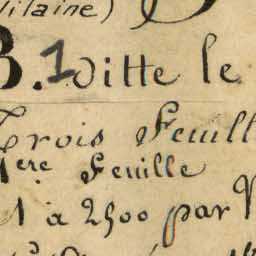 Vilaine)
B.1 ditte le
Trois Feuill
1ere Feuille
1 à 2500 par